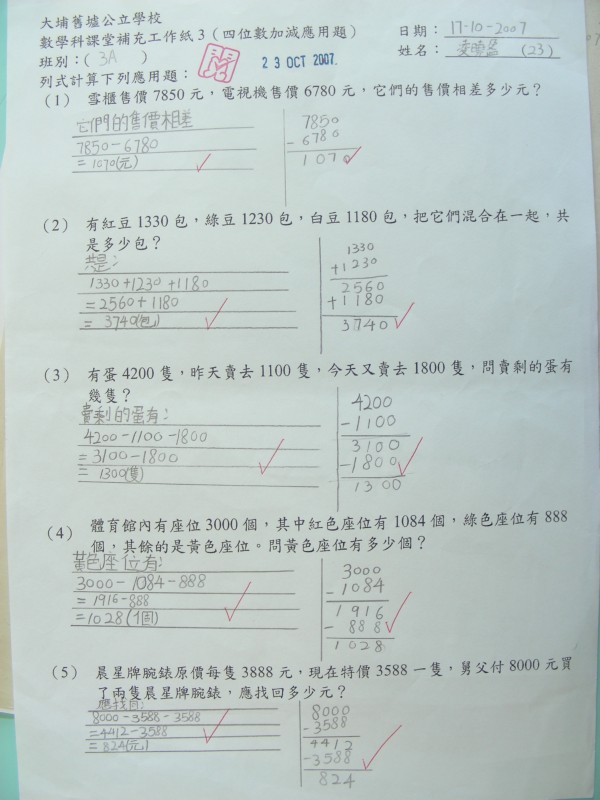 大埔舊墟公立學校
數學科課堂補充工作紙3（四位數加減應用題）
日期：17-10-2007
班別：( 3A )
姓名： (23)
23 OCT 2007
列式計算下列應用題：
(1) 雪櫃售價 7850 元，電視機售價 6780 元，它們的售價相差多少元？
它們的售價相差
7850-6780
=1070(元)
7850
-6780
1070
(2) 有紅豆 1330 包，綠豆 1230 包，白豆 1180 包，把它們混合在一起，共
是多少包？
共是：
1330+1230+1180
=2560+1180
=3740(包)
1330
+1230
2560
+1180
3740
(3) 有蛋 4200 隻，昨天賣去 1100 隻，今天又賣去 1800 隻，問賣剩的蛋有
幾隻？
賣剩的蛋有：
4200-1100-1800
=3100-1800
=1300(隻)
4200
-1100
3100
-1800
1300
(4) 體育館內有座位 3000 個，其中紅色座位有 1084 個，綠色座位有 888
個，其餘的是黃色座位。問黃色座位有多少個？
黃色座位有：
3000-1084-888
=1916-888
=1028(個)
3000
-1084
1916
-888
1028
(5) 晨星牌腕錶原價每隻 3888 元，現在特價 3588 一隻，舅父付 8000 元買
了兩隻晨星牌腕錶，應找回多少元？
應找回：
8000-3588-3588
=4412-3588
=824(元)
8000
-3588
4412
-3588
824